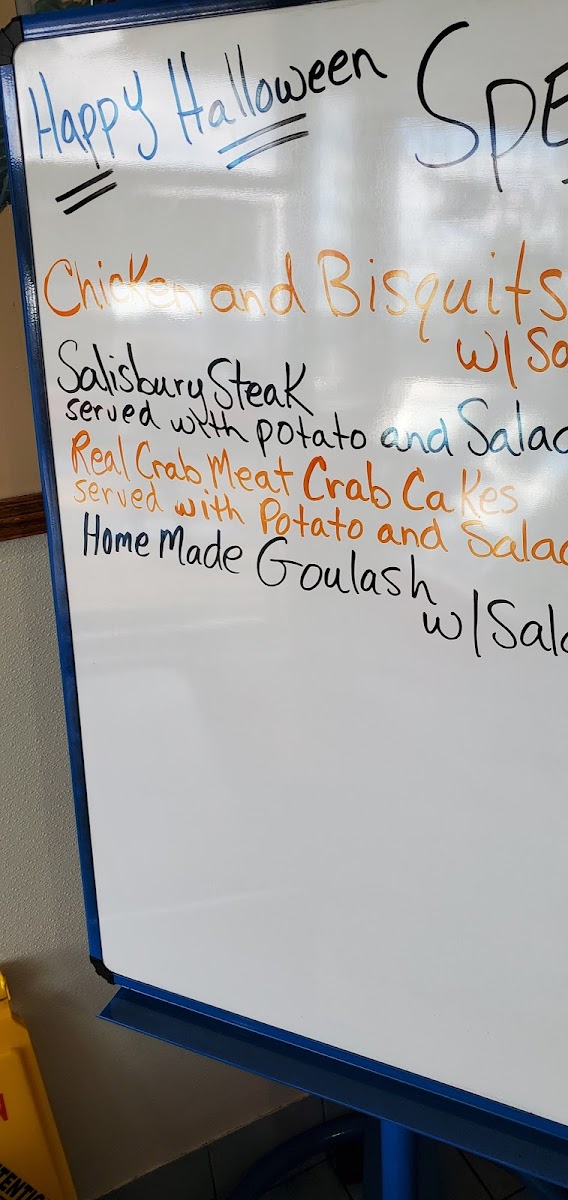 Happy Halloween
Spe
Chicken and Bisquits
w/ Sa
Salisbury Steak
served with potato and Salad
Real Crab Meat Crab Cakes
served with Potato and Salad
Home Made Goulash
w/ Sala